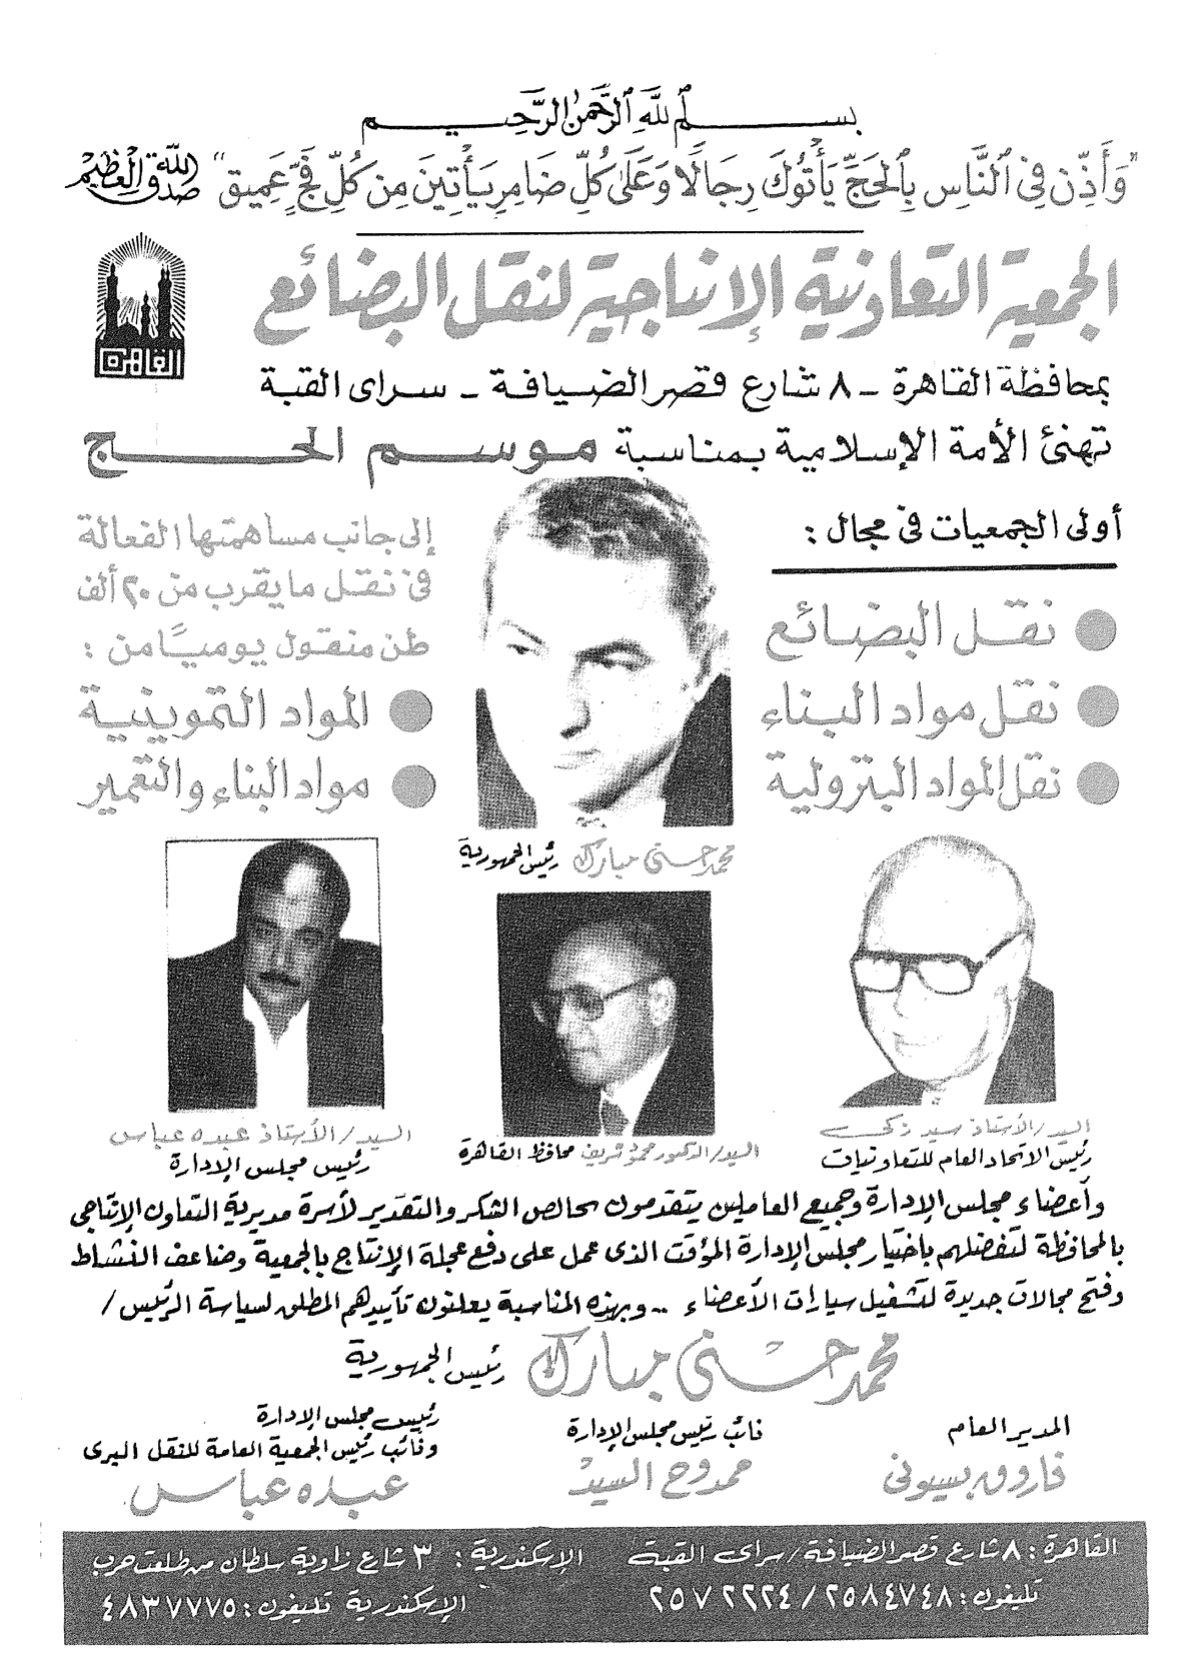 بسم الله الرحمن الرحيم
"وَأَذِّن فِي ٱلنَّاسِ بِٱلْحَجِّ يَأْتُوكَ رِجَالًا وَعَلَىٰ كُلِّ ضَامِرٍ يَأْتِينَ مِن كُلِّ فَجٍّ عَمِيقٍ" صدق الله العظيم
القاهرة
الجمعية التعاونية الإنتاجية لنقل البضائع
بمحافظة القاهرة - ٨ شارع قصر الضيافة - سراى القبة
تهنئ الأمة الإسلامية بمناسبة موسم الحج
أولى الجمعيات فى مجال :
● نقل البضائع
● نقل مواد البناء
● نقل المواد البترولية
إلى جانب مساهمتها الفعالة
فى نقل ما يقرب من ٢٠ ألف
طن منقول يوميًا من :
● المواد التموينية
● مواد البناء والتعمير
محمد حسنى مبارك رئيس الجمهورية
السيد/الأستاذ سيد زكى
رئيس الاتحاد العام للتعاونيات
السيد/الدكتور محمود شريف محافظ القاهرة
السيد/الأستاذ عبده عباس
رئيس مجلس الإدارة
وأعضاء مجلس الإدارة وجميع العاملين يتقدمون بخالص الشكر والتقدير لأسرة مديرية التعاون الإنتاجى
بالمحافظة لتفضلهم باختيار مجلس الإدارة المؤقت الذى عمل على دفع عجلة الإنتاج بالجمعية وضاعف النشاط
وفتح مجالات جديدة لتشغيل سيارات الأعضاء .. وبهذه المناسبة يعلنون تأييدهم المطلق لسياسة الرئيس /
محمد حسنى مبارك رئيس الجمهورية
المدير العام
فاروق بسيونى
نائب رئيس مجلس الإدارة
ممدوح السيد
رئيس مجلس الإدارة
ونائب رئيس الجمعية العامة للنقل البرى
عبده عباس
القاهرة : ٨ شارع قصر الضيافة / سراى القبة الإسكندرية : ٣ شاع زاوية سلطان من طلعت حرب
تليفون : ٢٥٨٤٧٤٨ / ٢٥٧٢٢٢٤ الإسكندرية تليفون : ٤٨٣٧٧٧٥